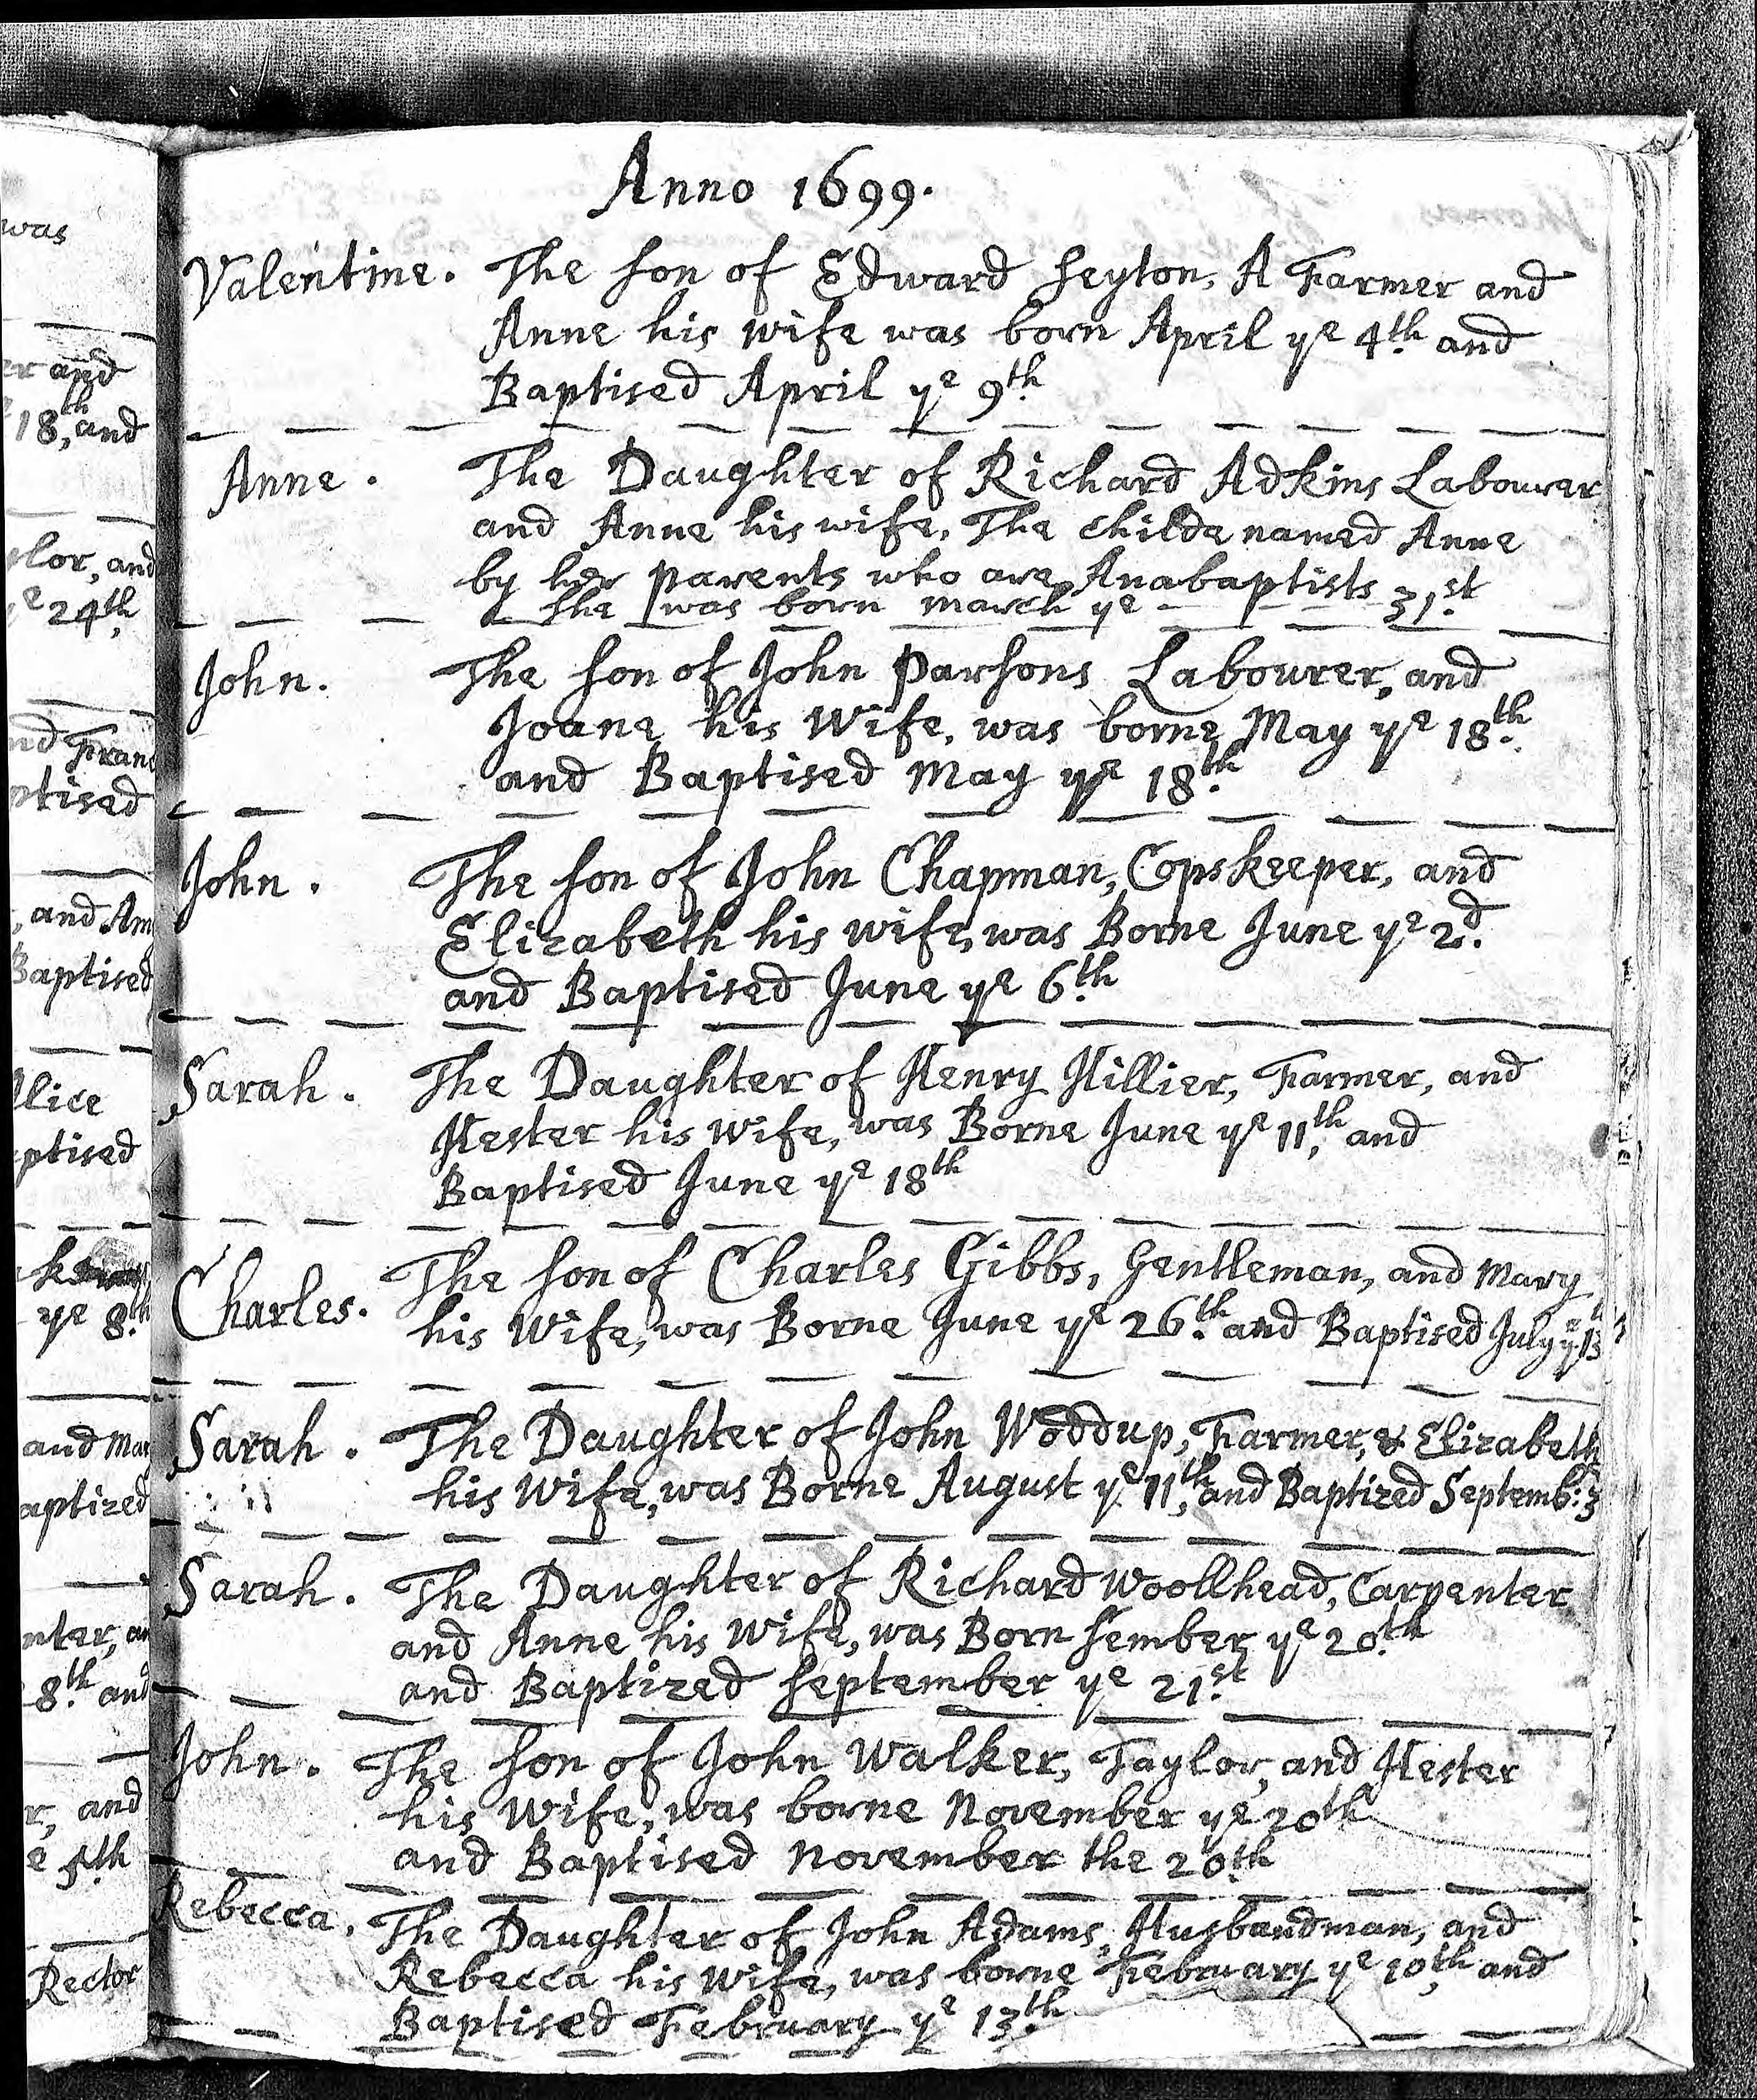 Anno 1699.
Valentine. The son of Edward Seyton, A Farmer and
Anne his wife was born April ye 4th and
Baptised April ye 9th
Anne. The Daughter of Richard Adkins Labourer
and Anne his wife, The childe named Anne
by her parents who are Anabaptists
& She was born march ye 31st
John. The son of John Parsons Labourer, and
Joane his Wife, was borne May ye 18th
and Baptised May ye 18th
John. The son of John Chapman, Copskeeper, and
Elizabeth his wife, was Borne June ye 2d
and Baptised June ye 6th
Sarah. The Daughter of Henry Hillier, Farmer, and
Hester his Wife, was Borne June ye 11th, and
Baptised June ye 18th
Charles. The son of Charles Gibbs, Gentleman, and Mary
his Wife, was Borne June ye 26th and Baptised July ye 13
Sarah. The Daughter of John Woddup, Farmer, & Elizabeth
his Wife, was Borne August ye 11th, and Baptized Septemb: 3
Sarah. The Daughter of Richard Woollhead, Carpenter
and Anne his Wife, was Born Sember ye 20th
and Baptized September ye 21st
John. The son of John Walker, Taylor, and Hester
his Wife, was borne November ye 20th
and Baptised November the 20th
Rebecca, The Daughter of John Adams, Husbandman, and
Rebecca his Wife, was borne February ye 10th, and
Baptised February ye 13th
was
er and
18th, and
and
24th
nd Fran
ptised
, and Am
Baptised
lice
ptised
ye 8th
and Mar
aptized
nter, an
8th and
r, and
e 5th
Rector